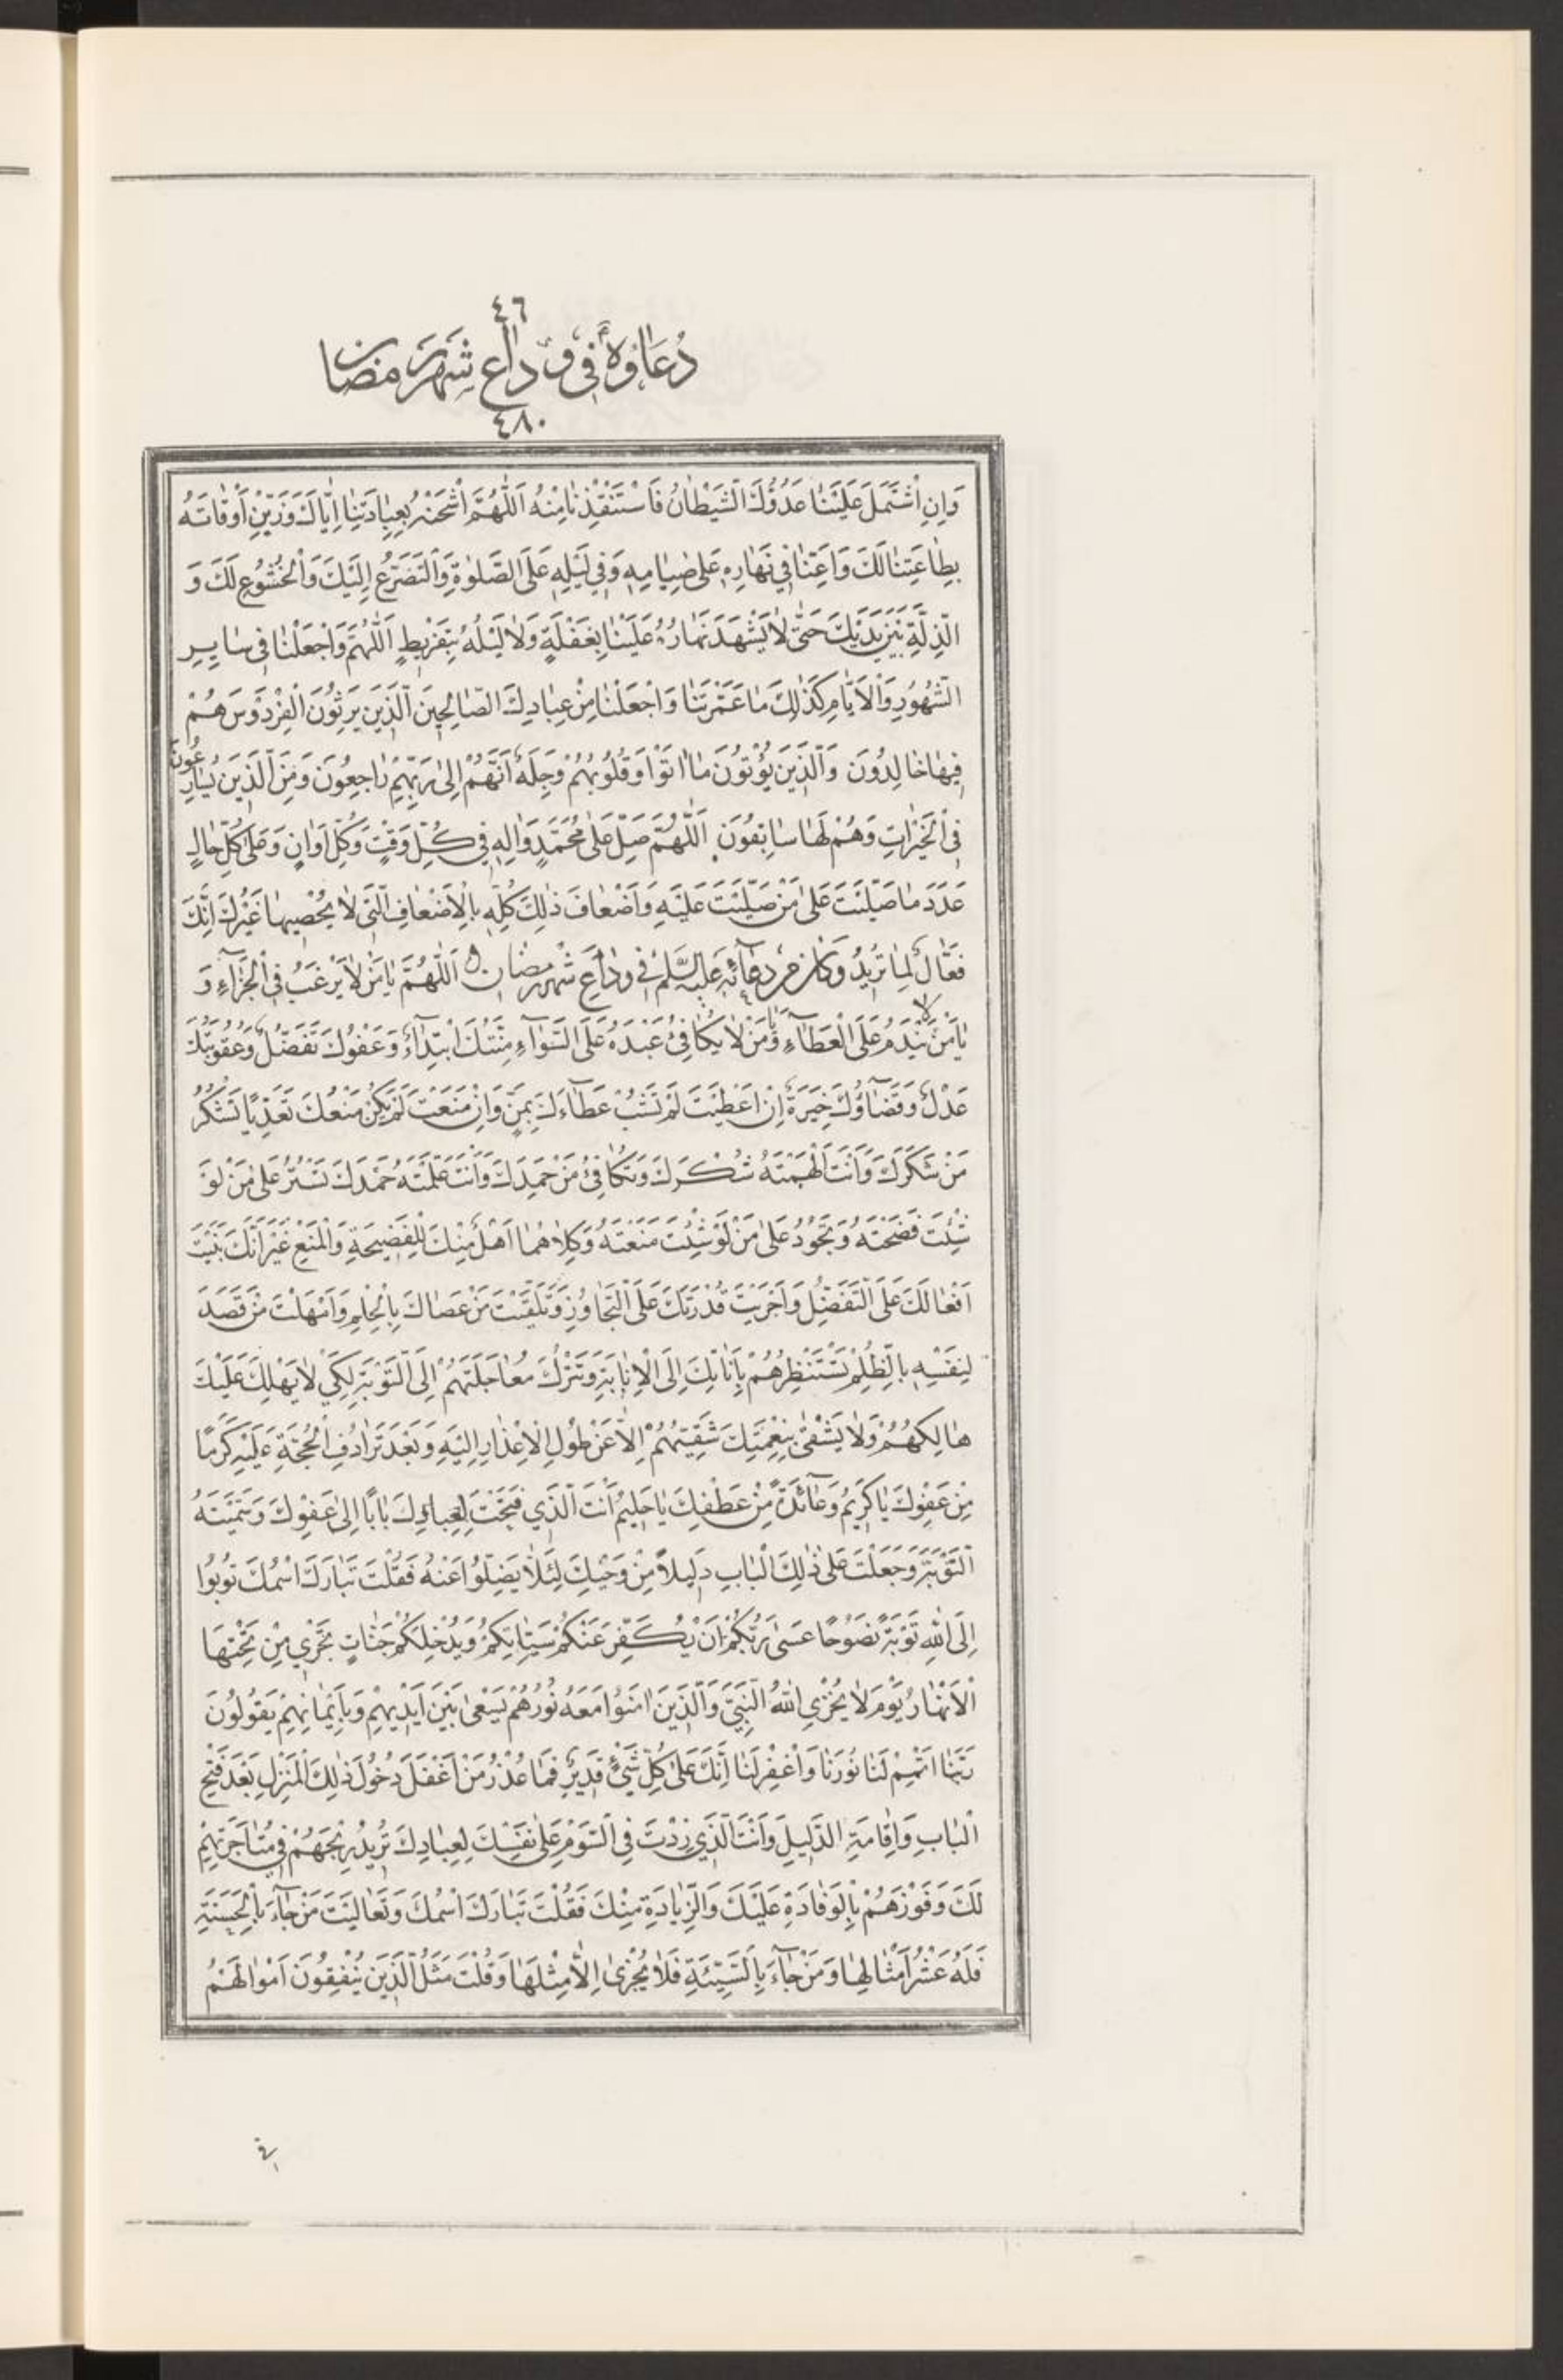 ٤٦
دُعَاؤُهُ فِي وَدَاعِ شَهْرِ رَمَضَانَ
٤٨٠
وَاِنِ اشْتَمَلَ عَلَيْنَا عَدُوُّكَ الشَّيْطَانُ فَاسْتَنْقِذْنَا مِنْهُ اَللّٰهُمَّ اشْحَنْهُ بِعِبَادَتِنَا اِيَّاكَ وَزَيِّنْ اَوْقَاتَهُ
بِطَاعَتِنَا لَكَ وَاَعِنَّا فِي نَهَارِهِ عَلَى صِيَامِهِ وَفِي لَيْلِهِ عَلَى الصَّلٰوةِ وَالتَّضَرُّعِ اِلَيْكَ وَالْخُشُوعِ لَكَ وَ
الذِّلَّةِ بَيْنَ يَدَيْكَ حَتّٰى لَا يَشْهَدَ نَهَارُهُ عَلَيْنَا بِغَفْلَةٍ وَلَا لَيْلُهُ بِتَفْرِيطٍ اَللّٰهُمَّ وَاجْعَلْنَا فِي سَايِرِ
الشُّهُورِ وَالْاَيَّامِ كَذٰلِكَ مَا عَمَّرْتَنَا وَاجْعَلْنَا مِنْ عِبَادِكَ الصَّالِحِينَ الَّذِينَ يَرِثُونَ الْفِرْدَوْسَ هُمْ
فِيهَا خَالِدُونَ وَالَّذِينَ يُؤْتُونَ مَا اٰتَوْا وَقُلُوبُهُمْ وَجِلَةٌ اَنَّهُمْ اِلٰى رَبِّهِمْ رَاجِعُونَ وَمِنَ الَّذِينَ يُسَارِعُونَ
فِي الْخَيْرَاتِ وَهُمْ لَهَا سَابِقُونَ اَللّٰهُمَّ صَلِّ عَلٰى مُحَمَّدٍ وَاٰلِهِ فِي كُلِّ وَقْتٍ وَكُلِّ اَوَانٍ وَعَلٰى كُلِّ حَالٍ
عَدَدَ مَا صَلَّيْتَ عَلٰى مَنْ صَلَّيْتَ عَلَيْهِ وَاَضْعَافَ ذٰلِكَ كُلِّهِ بِالْاَضْعَافِ الَّتِي لَا يُحْصِيهَا غَيْرُكَ اِنَّكَ
فَعَّالٌ لِمَا تُرِيدُ وَكَانَ مِنْ دُعَآئِهِ عَلَيْهِ السَّلٰمُ فِي وَدَاعِ شَهْرِ رَمَضَانَ اَللّٰهُمَّ يَا مَنْ لَا يَرْغَبُ فِي الْجَزَآءِ وَ
يَا مَنْ لَا يَنْدَمُ عَلَى الْعَطَآءِ وَيَا مَنْ لَا يُكَافِئُ عَبْدَهُ عَلَى السَّوَآءِ مِنَّتُكَ ابْتِدَآءٌ وَعَفْوُكَ تَفَضُّلٌ وَعُقُوبَتُكَ
عَدْلٌ وَقَضَآؤُكَ خِيَرَةٌ اِنْ اَعْطَيْتَ لَمْ تَشُبْ عَطَآءَكَ بِمَنٍّ وَاِنْ مَنَعْتَ لَمْ يَكُنْ مَنْعُكَ تَعَدِّيًا تَشْكُرُ
مَنْ شَكَرَكَ وَاَنْتَ اَلْهَمْتَهُ شُكْرَكَ وَتُكَافِئُ مَنْ حَمِدَكَ وَاَنْتَ عَلَّمْتَهُ حَمْدَكَ تَسْتُرُ عَلٰى مَنْ لَوْ
شِئْتَ فَضَحْتَهُ وَتَجُودُ عَلٰى مَنْ لَوْ شِئْتَ مَنَعْتَهُ وَكِلَاهُمَا اَهْلٌ مِنْكَ لِلْفَضِيحَةِ وَالْمَنْعِ غَيْرَ اَنَّكَ بَنَيْتَ
اَفْعَالَكَ عَلَى التَّفَضُّلِ وَاَجْرَيْتَ قُدْرَتَكَ عَلَى التَّجَاوُزِ وَتَلَقَّيْتَ مَنْ عَصَاكَ بِالْحِلْمِ وَاَمْهَلْتَ مَنْ قَصَدَ
لِنَفْسِهِ بِالظُّلْمِ تَسْتَنْظِرُهُمْ بِاَنَاتِكَ اِلَى الْاِنَابَةِ وَتَتْرُكُ مُعَاجَلَتَهُمْ اِلَى التَّوْبَةِ لِكَيْ لَا يَهْلِكَ عَلَيْكَ
هَالِكُهُمْ وَلَا يَشْقٰى بِنِعْمَتِكَ شَقِيُّهُمْ اِلَّا عَنْ طُولِ الْاِعْذَارِ اِلَيْهِ وَبَعْدَ تَرَادُفِ الْحُجَّةِ عَلَيْهِ كَرَمًا
مِنْ عَفْوِكَ يَا كَرِيمُ وَعَآئِدَةً مِنْ عَطْفِكَ يَا حَلِيمُ اَنْتَ الَّذِي فَتَحْتَ لِعِبَادِكَ بَابًا اِلٰى عَفْوِكَ وَسَمَّيْتَهُ
التَّوْبَةَ وَجَعَلْتَ عَلٰى ذٰلِكَ الْبَابِ دَلِيلًا مِنْ وَحْيِكَ لِئَلَّا يَضِلُّوا عَنْهُ فَقُلْتَ تَبَارَكَ اسْمُكَ تُوبُوا
اِلَى اللّٰهِ تَوْبَةً نَصُوحًا عَسٰى رَبُّكُمْ اَنْ يُكَفِّرَ عَنْكُمْ سَيِّئَاتِكُمْ وَيُدْخِلَكُمْ جَنَّاتٍ تَجْرِي مِنْ تَحْتِهَا
الْاَنْهَارُ يَوْمَ لَا يُخْزِي اللّٰهُ النَّبِيَّ وَالَّذِينَ اٰمَنُوا مَعَهُ نُورُهُمْ يَسْعٰى بَيْنَ اَيْدِيهِمْ وَبِاَيْمَانِهِمْ يَقُولُونَ
رَبَّنَا اَتْمِمْ لَنَا نُورَنَا وَاغْفِرْ لَنَا اِنَّكَ عَلٰى كُلِّ شَيْءٍ قَدِيرٌ فَمَا عُذْرُ مَنْ اَغْفَلَ دُخُولَ ذٰلِكَ الْمَنْزِلِ بَعْدَ فَتْحِ
الْبَابِ وَاِقَامَةِ الدَّلِيلِ وَاَنْتَ الَّذِي زِدْتَ فِي السَّوْمِ عَلٰى نَفْسِكَ لِعِبَادِكَ تُرِيدُ رِبْحَهُمْ فِي مُتَاجَرَتِهِمْ
لَكَ وَفَوْزَهُمْ بِالْوِفَادَةِ عَلَيْكَ وَالزِّيَادَةِ مِنْكَ فَقُلْتَ تَبَارَكَ اسْمُكَ وَتَعَالَيْتَ مَنْ جَآءَ بِالْحَسَنَةِ
فَلَهُ عَشْرُ اَمْثَالِهَا وَمَنْ جَآءَ بِالسَّيِّئَةِ فَلَا يُجْزٰى اِلَّا مِثْلَهَا وَقُلْتَ مَثَلُ الَّذِينَ يُنْفِقُونَ اَمْوَالَهُمْ
فِي